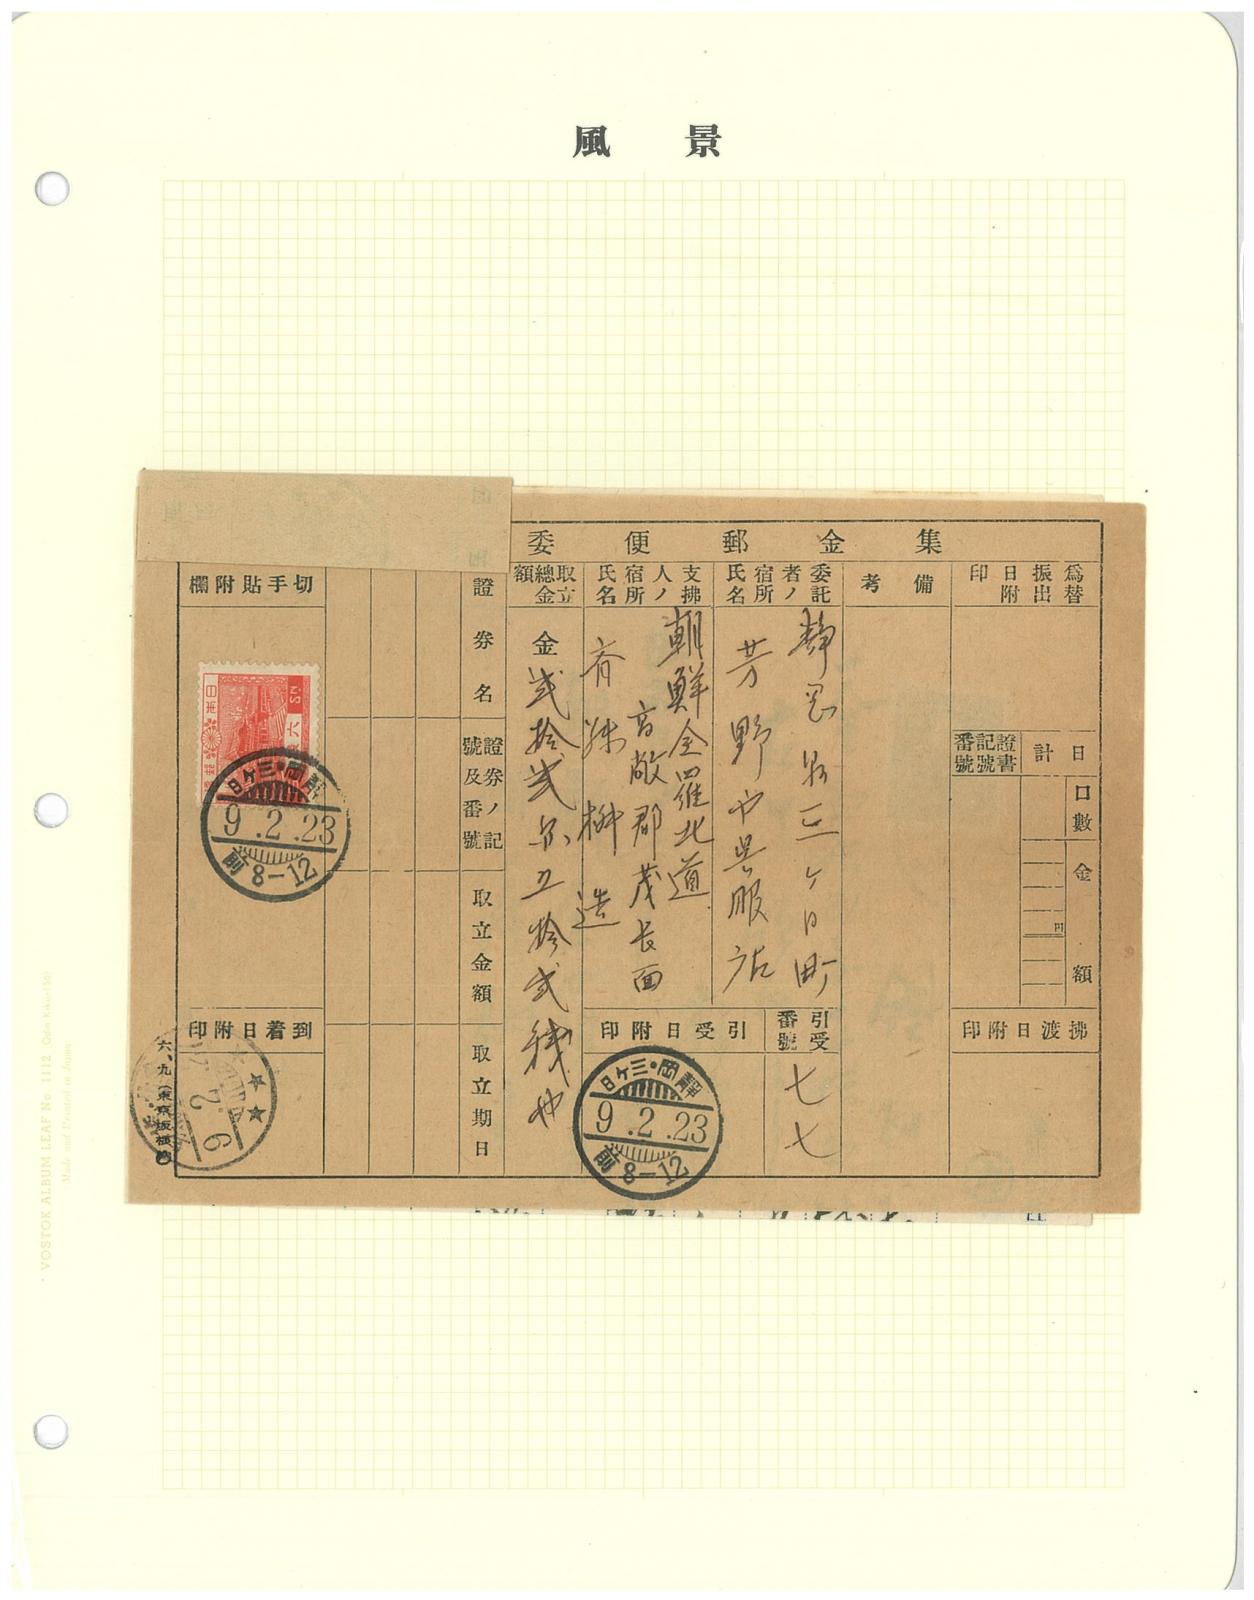 風景
集金郵便委
為替振出日附印
備考
委託者ノ宿所氏名
静岡県三ヶ日町
芳野や呉服店
支拂人ノ宿所氏名
朝鮮全羅北道
高敞郡茂長面
取立總金額
金弐拾弐円五拾弐銭也
證券名
證券ノ記號及番號
取立金額
取立期日
切手貼附欄
日本
六
SN
靜岡・三ヶ日
9.2.23
前8-12
到着日附印
9.2.
六、九(東京板橋
證書記號番號
日計
口數
金額
円
拂渡日附印
引受番號
七七
引受日附印
靜岡・三ヶ日
9.2.23
前8-12
VOSTOK ALBUM LEAF No. 1112
Made and Printed in Japan